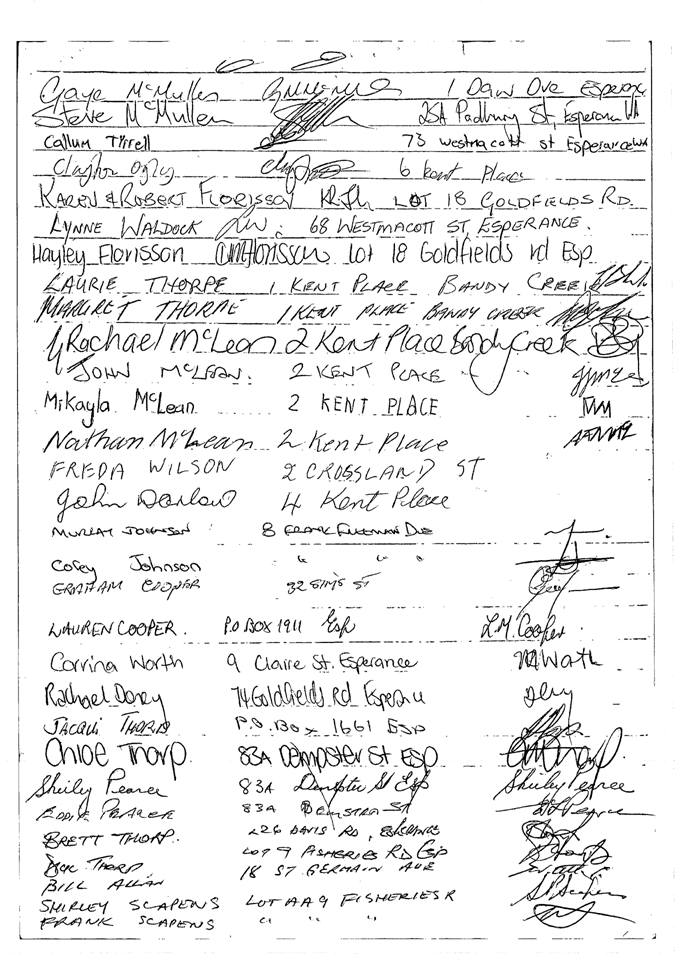 Gaye McMullen 1 Daw Dve Esperance
Steve McMullen 25A Padbury St, Esperance WA
Callum Threll 73 Westmacott St Esperance WA
Clayton Ogley 6 Kent Place
KAREN & ROBERT FLORISSON LOT 18 GOLDFIELDS RD.
LYNNE WALDOCK 68 WESTMACOTT ST, ESPERANCE.
Hayley Florisson Lot 18 Goldfields rd Esp
LAURIE THORPE 1 KENT PLACE BANDY CREEK
MARGRET THORPE 1 KENT PLACE BANDY CREEK
Rachael McLean 2 Kent Place Bandy Creek
JOHN MCLEAN. 2 KENT PLACE
Mikayla McLean 2 KENT PLACE
Nathan McLean 2 Kent Place
FREDA WILSON 2 CROSSLAND ST
John Darlow 4 Kent Place
MURRAY JOHNSON 8 FRANK FREEMAN DVE
Corey Johnson " " "
GRAHAM COOPER 32 SIMS ST
LAUREN COOPER. P.O BOX 1911 Esp L.M. Cooper
Corrina Worth 9 Claire St. Esperance
Rachael Doney 74 Goldfields Rd Esperance
JACQUI THORP P.O. Box 1661 ESP
Chloe Thorp. 83A Dempster St ESP
Shirley Pearce 83A Dempster St Esp Shirley Pearce
EDDIE PEARCE 83A DEMPSTER ST
BRETT THORP. 226 DAVIS RD, ESPERANCE
THORP LOT 9 FISHERIES RD Esp
BILL 18 ST GERMAIN AVE
SHIRLEY SCAPENS LOT AA9 FISHERIES R
FRANK SCAPENS " " "